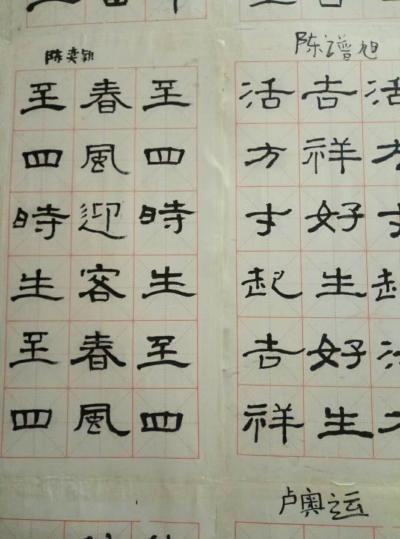 陈奕
至四時生至四
春風迎客春風
至四時生至四
陈谱旭
吉祥好生好生
活方才起吉祥
卢奥运